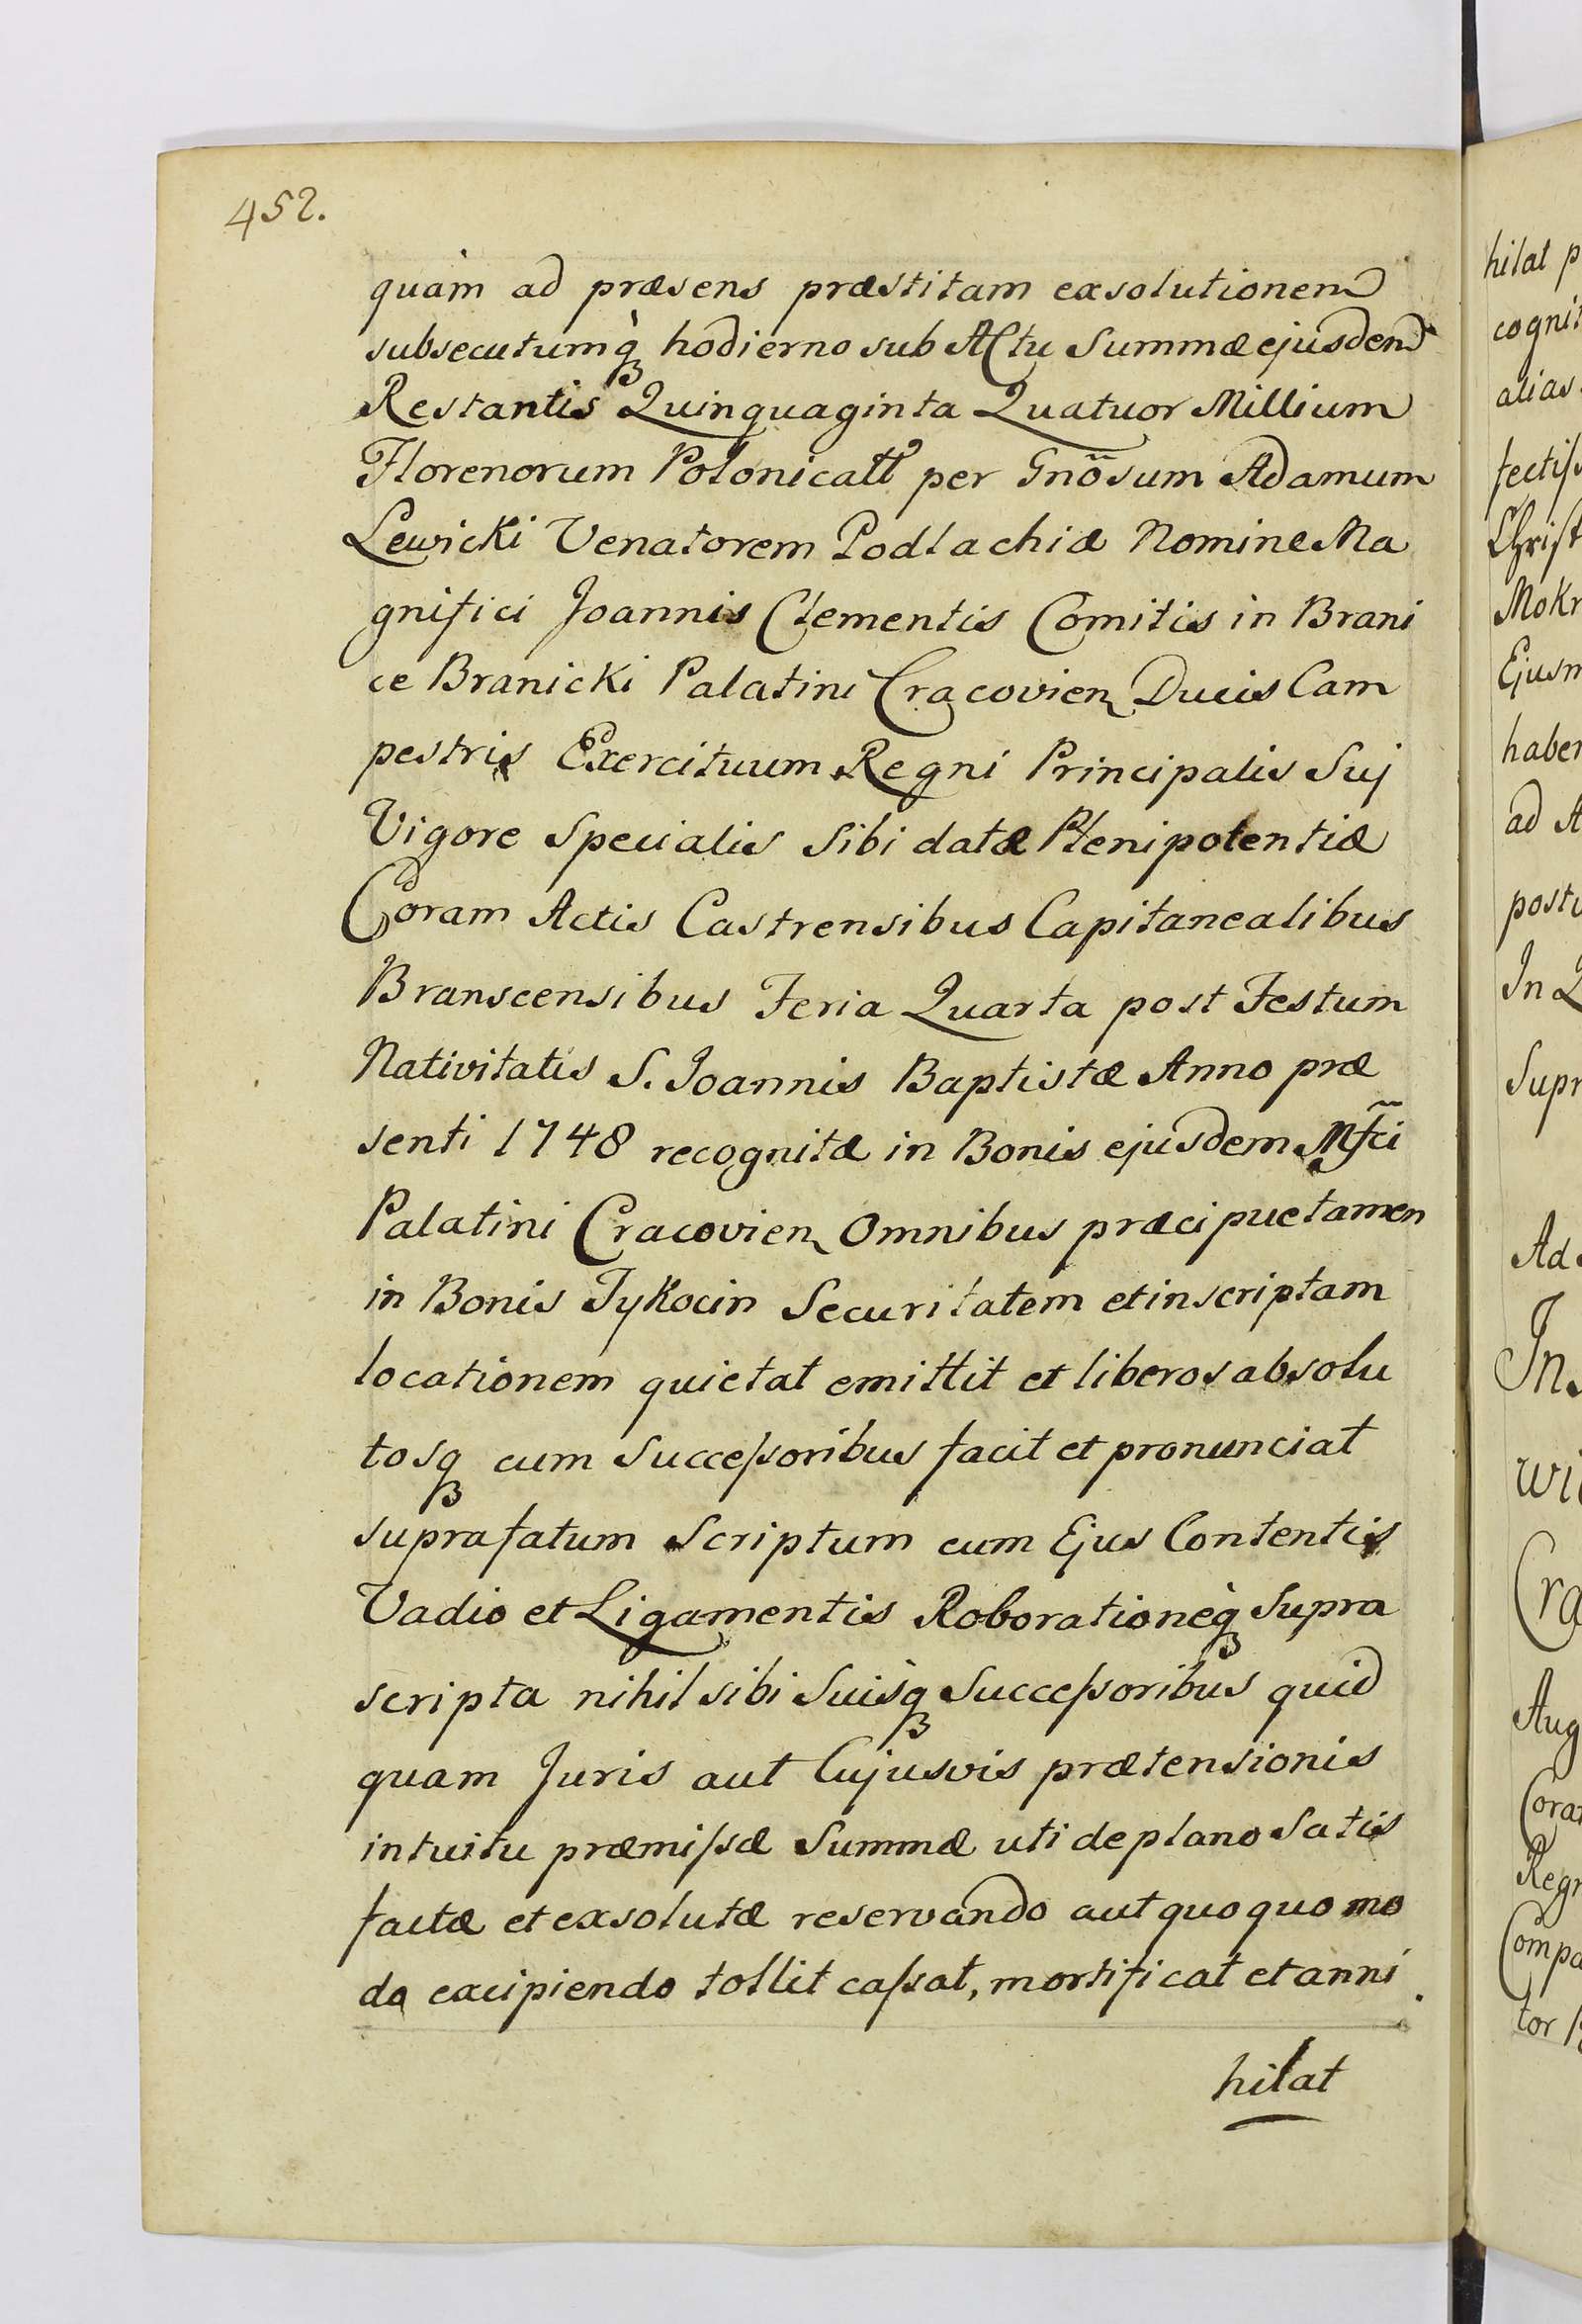 452.
quàm ad præsens præstitam exsolutionem
subsecutumq̀ hodierno sub Actu Summæ ejusdem
Restantis Quinquaginta Quatuor Millium
Florenorum Polonicall per Gnõsum Adamum
Lewicki Venatorem Podlachiæ Nomine Ma
gnifici Joannis Clementis Comitis in Brani
ce Branicki Palatini Cracovien Ducis Cam
pestris Exercituum Regni Principalis Suj
Vigore Specialis Sibi datæ Plenipotentiæ
Coram Actis Castrensibus Capitanealibus
Branscensibus Feria Quarta post Festum
Nativitatis S. Joannis Baptistæ Anno præ
senti 1748 recognitæ in Bonis ejusdem Mf̃ci
Palatini Cracovien Omnibus præcipue tamen
in Bonis Tykocin Securitatem et inscriptam
locationem quietat emittit et liberos absolu
tosq cum Succeſsoribus facit et pronunciat
suprafatum Scriptum cum Ejus Contentis
Vadio et Ligamentis Roborationeq̀ Supra
scripta nihil sibi Suisq̀ Succeſsoribus quid
quam Juris aut Cujusvis prætensionis
intuitu præmiſsæ Summæ uti de plano Satis
factæ et exsolutæ reservando aut quoquo mo
do excipiendo tollit caſsat, mortificat et anni
hilat
hilat p
cogni
alias
fectiſs
Christ
Mokr
Ejusm
haber
ad A
postu
In Q
Supr
Ad
In
wi
Cra
Aug
Cora
Regn
Compa
tor